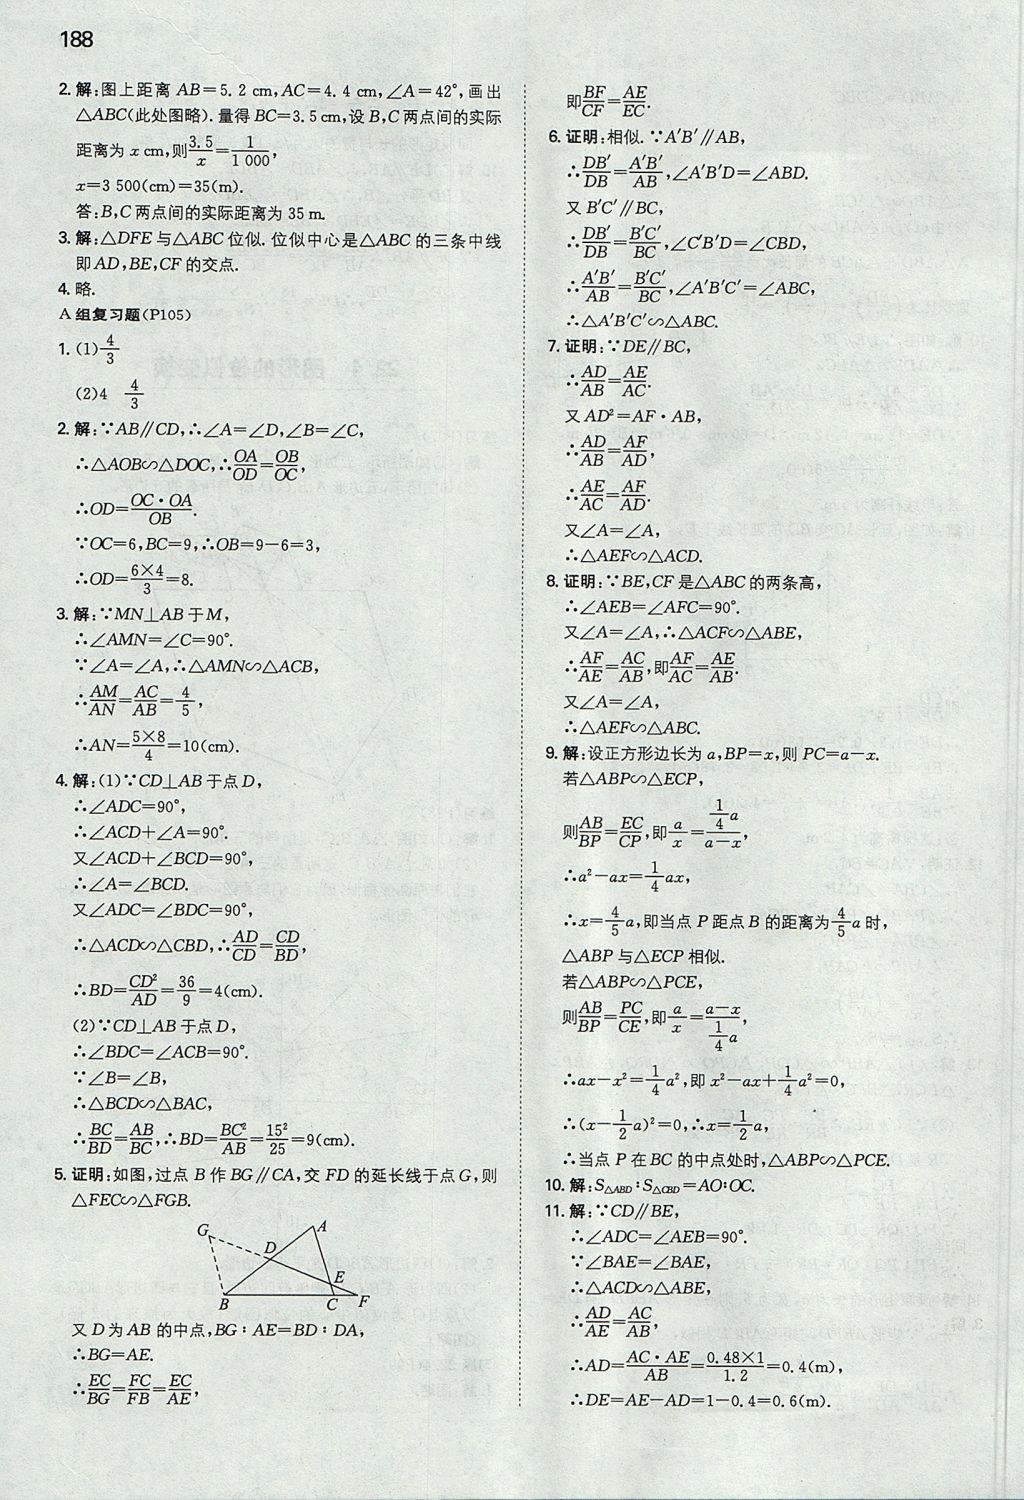 188
2. 解:图上距离 AB=5.2 cm,AC=4.4 cm,∠A=42°,画出
△ABC(此处图略).量得 BC=3.5 cm,设 B,C 两点间的实际
距离为 x cm,则3.5/x=1/1 000,
x=3 500(cm)=35(m).
答:B,C 两点间的实际距离为 35 m.
3. 解:△DFE与△ABC位似.位似中心是△ABC 的三条中线
即 AD,BE,CF 的交点.
4. 略.
A 组复习题(P105)
1. (1)4/3
(2)4 4/3
2. 解:∵AB∥CD,∴∠A=∠D,∠B=∠C,
∴△AOB∽△DOC,∴OA/OD=OB/OC,
∴OD=OC·OA/OB.
∵OC=6,BC=9,∴OB=9-6=3,
∴OD=6×4/3=8.
3. 解:∵MN⊥AB于M,
∴∠AMN=∠C=90°.
∵∠A=∠A,∴△AMN∽△ACB,
∴AM/AN=AC/AB=4/5,
∴AN=5×8/4=10(cm).
4. 解:(1)∵CD⊥AB于点D,
∴∠ADC=90°,
∴∠ACD+∠A=90°.
又∠ACD+∠BCD=90°,
∴∠A=∠BCD.
又∠ADC=∠BDC=90°,
∴△ACD∽△CBD,∴AD/CD=CD/BD,
∴BD=CD²/AD=36/9=4(cm).
(2)∵CD⊥AB于点D,
∴∠BDC=∠ACB=90°.
∵∠B=∠B,
∴△BCD∽△BAC,
∴BC/BD=AB/BC,∴BD=BC²/AB=15²/25=9(cm).
5. 证明:如图,过点 B 作 BG∥CA,交 FD 的延长线于点 G,则
△FEC∽△FGB.
G
A
D
E
B
C
F
又 D 为 AB 的中点,BG∶AE=BD∶DA,
∴BG=AE.
∴EC/BG=FC/FB=EC/AE,
即BF/CF=AE/EC.
6. 证明:相似.∵A′B′∥AB,
∴DB′/DB=A′B′/AB,∠A′B′D=∠ABD.
又 B′C′∥BC,
∴DB′/DB=B′C′/BC,∠C′B′D=∠CBD,
∴A′B′/AB=B′C′/BC,∠A′B′C′=∠ABC,
∴△A′B′C′∽△ABC.
7. 证明:∵DE∥BC,
∴AD/AB=AE/AC.
又AD²=AF·AB,
∴AD/AB=AF/AD,
∴AE/AC=AF/AD.
又∠A=∠A,
∴△AEF∽△ACD.
8. 证明:∵BE,CF 是△ABC 的两条高,
∴∠AEB=∠AFC=90°.
又∠A=∠A,∴△ACF∽△ABE,
∴AF/AE=AC/AB,即AF/AC=AE/AB.
又∠A=∠A,
∴△AEF∽△ABC.
9. 解:设正方形边长为 a,BP=x,则 PC=a-x.
若△ABP∽△ECP,
则AB/BP=EC/CP,即a/x=1/4a/a-x,
∴a²-ax=1/4ax,
∴x=4/5a,即当点 P 距点 B 的距离为4/5a时,
△ABP 与△ECP 相似.
若△ABP∽△PCE,
则AB/BP=PC/CE,即a/x=a-x/1/4a,
∴ax-x²=1/4a²,即 x²-ax+1/4a²=0,
∴(x-1/2a)²=0,∴x=1/2a,
∴当点 P 在 BC 的中点处时,△ABP∽△PCE.
10. 解:S△ABD∶S△CBD=AO∶OC.
11. 解:∵CD∥BE,
∴∠ADC=∠AEB=90°.
∵∠BAE=∠BAE,
∴△ACD∽△ABE,
∴AD/AE=AC/AB,
∴AD=AC·AE/AB=0.48×1/1.2=0.4(m),
∴DE=AE-AD=1-0.4=0.6(m).